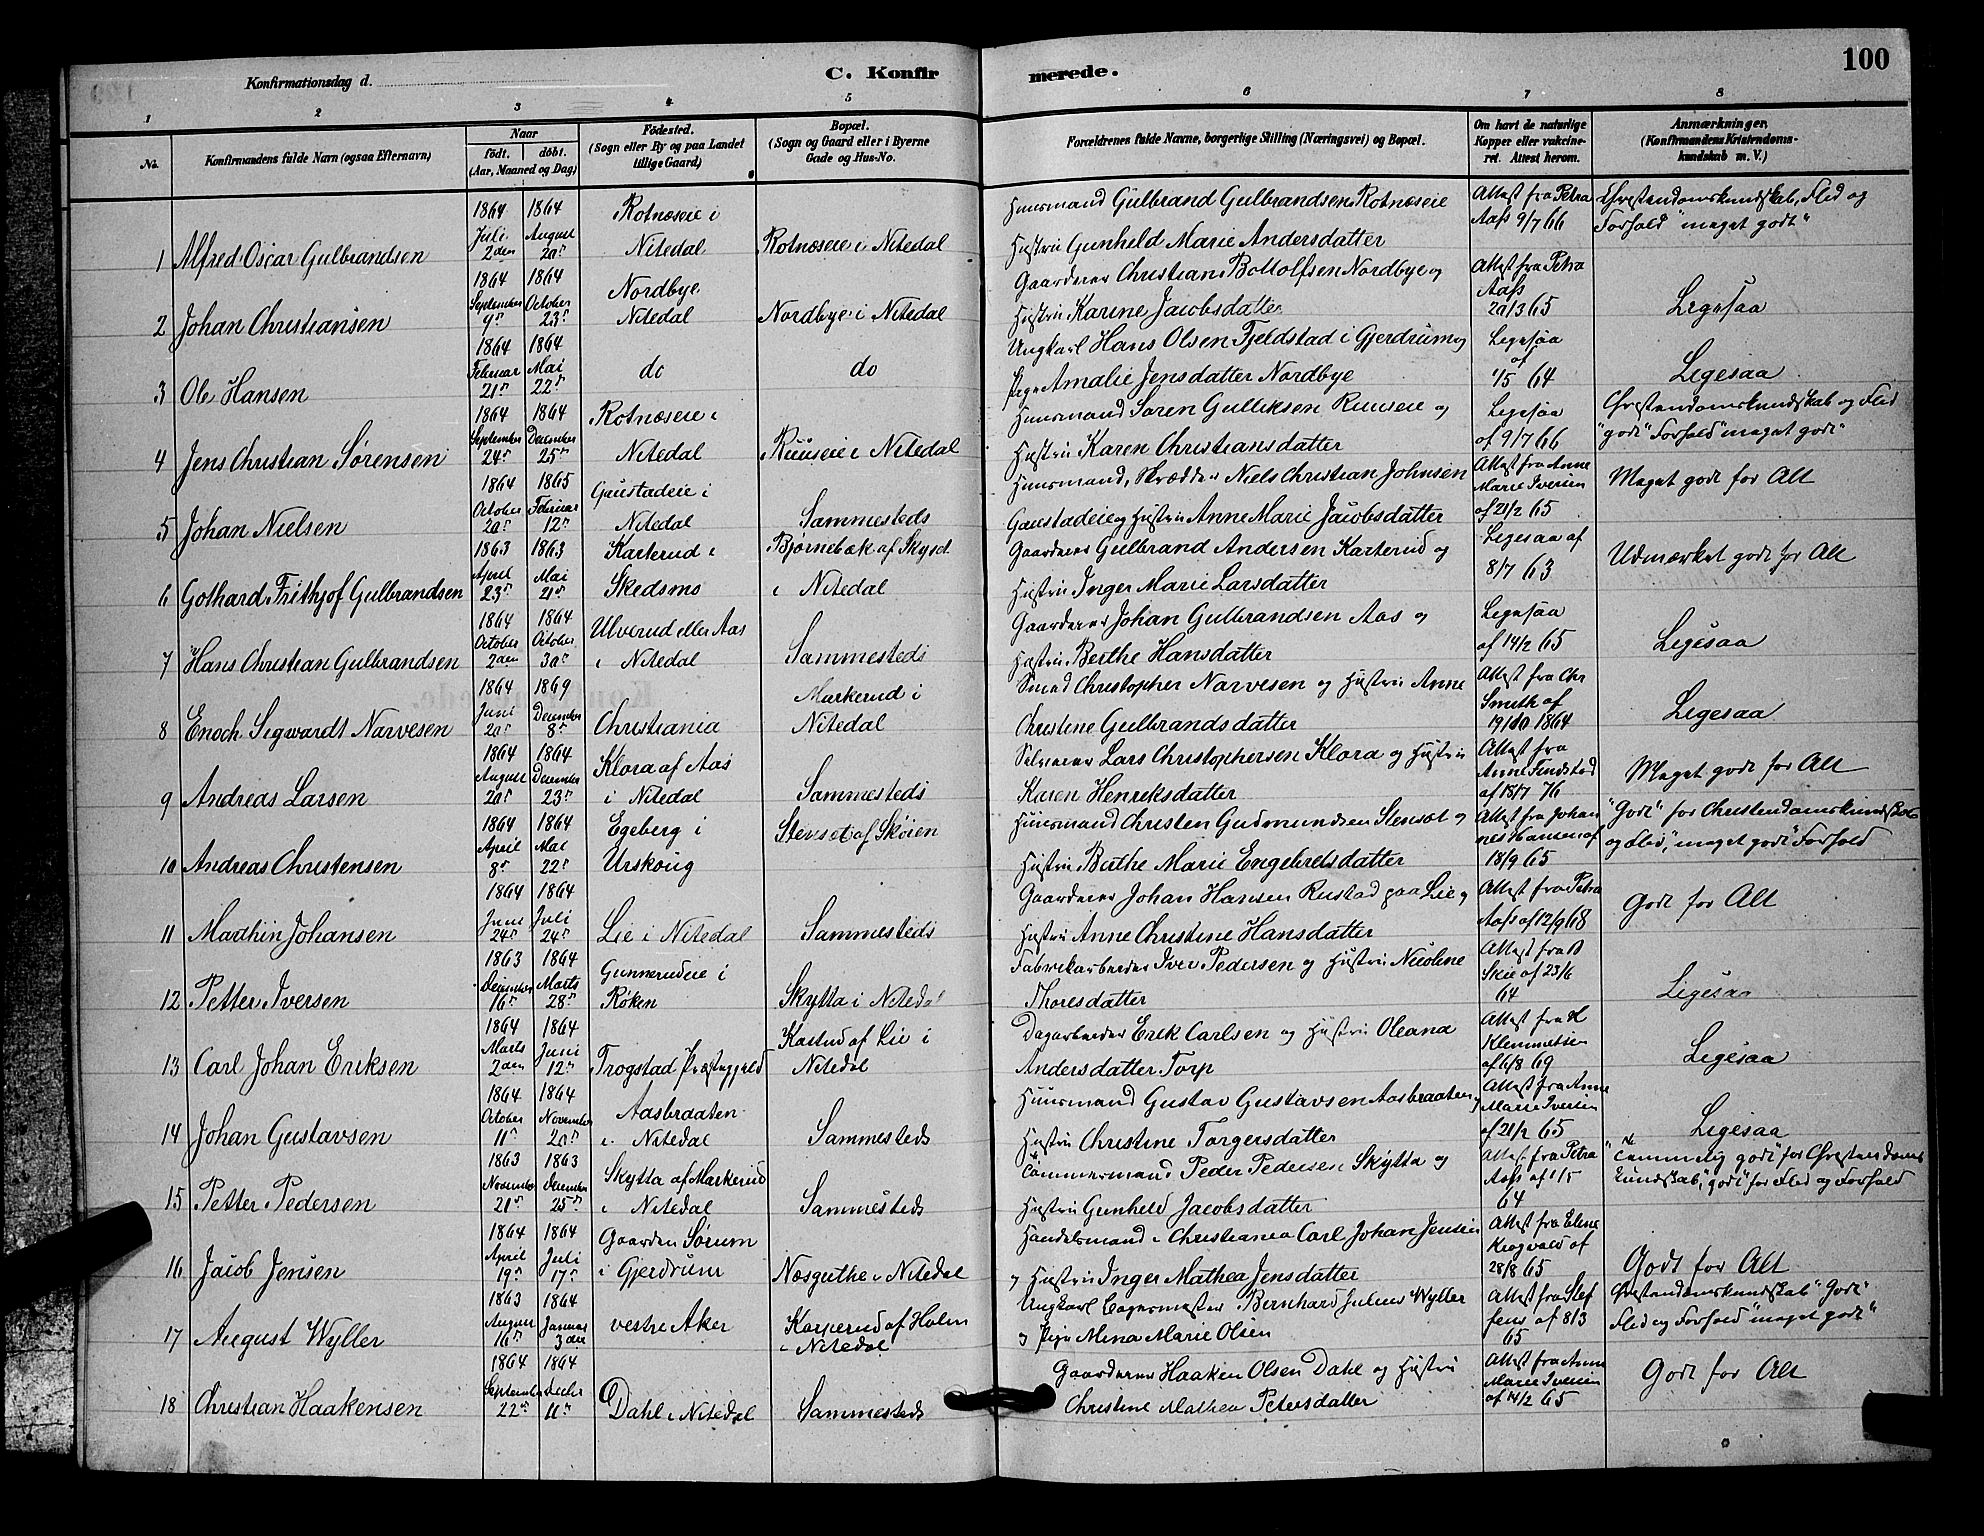 Konfirmationsdag d.
C. Konfir
merede.
100
1 2 3 4 5 6 7 8
No.
Konfirmandens fulde Navn (ogsaa Efternavn)
Naar
født. døbt.
(Aar, Maaned og Dag)
Fødested.
(Sogn eller By og paa Landet
tillige Gaard)
Bopæl.
(Sogn og Gaard eller i Byerne
Gade og Hus-No.
Forældrenes fulde Navne, borgerlige Stilling (Næringsvei) og Bopæl.
Om havt de naturlige
Kopper eller vakcine-
ret. Attest herom.
Anmærkninger.
(Konfirmandens Kristendoms-
kundskab m. V.)
1864 1864 Rotnæseie i Huusmand Gulbrand Gulbrandsen Rotnæseie Attest fra Petra Christendomskundskab, Flid og
Juli August Aass 9/7 66 Forhold "meget godt"
1 Alfred Oscar Gulbrandsen 2den 20de Nitedal Rotnæseie i Nitedal Hustru Gunhild Marie Andersdatter
1864 1864 Nordbye Gaardener Christian Bottolfsen Nordbye og Attest fra Petra
September October Aass
2 Johan Christiansen 9de 23de Nitedal Nordbye i Nitedal Hustru Karine Jacobsdatter 20/3 65 Ligesaa
1864 1864 Ungkarl Hans Olsen Fjeldstad i Gjerdrum og Ligesaa
Februar Mai do do af
3 Ole Hansen 21de 22de Pige Amalie Jensdatter Nordbye 1/5 64 Ligesaa
1864 1864 Rotnæseie i Huusmand Søren Gulliksen Ruuseie og Ligesaa Christendomskundskab og Flid
September December af 9/7 66 "godt" Forhold "meget godt"
4 Jens Christian Sørensen 24de 25de Nitedal Ruuseie i Nitedal Hustru Karen Christiansdatter
1864 1865 Gaustadeie i Huusmand, Skrædder Niels Christian Johnsen Attest fra Anne Meget godt for Alt
October Februar Marie Iversen
5 Johan Nielsen 20de 12te Nitedal Sammesteds Gaustadeie og Hustru Anne Marie Jacobsdatter af 21/2 65
1863 1863 Karterud i Bjørnebæk af Skyset Gaardener Gulbrand Andersen Karterud og Ligesaa af Udmærket godt for Alt
April Mai 8/7 63
6 Gothard Frithjof Gulbrandsen 23de 21de Skedsmo i Nitedal Hustru Inger Marie Larsdatter
1864 1864 Ulverud eller Aas Gaardener Johan Gulbrandsen Aas og Ligesaa
October October Ligesaa
7 Hans Christian Gulbrandsen 2den 30de i Nitedal Sammesteds Hustru Berthe Hansdatter af 14/2 65
1864 1869 Markerud i Smed Christopher Narvesen og Hustru Anne Attest fra Chr
Juni December Smith af Ligesaa
8 Enoch Sigwardt Narvesen 20de 8de Christiania Nitedal Christine Gulbrandsdatter 19/10 1864
1864 1864 Klora af Aas Selveier Lars Christophersen Klora og Hustru Attest fra
August December Anne Findstad Meget godt for Alt
9 Andreas Larsen 20de 23de i Nitedal Sammesteds Karen Henriksdatter af 18/7 76
1864 1864 Egeberg i Stenset af Skøien Huusmand Christen Gudmundsen Stenset og Attest fra Johan "Godt" for Christendomskundskab
April Mai nes Hansen af og Flid, "meget godt" Forhold
10 Andreas Christensen 8de 22de Urskoug Hustru Berthe Marie Engebretsdatter 18/9 65
1864 1864 Gaardener Johan Hansen Rustad paa Lie og Attest fra Petra Godt for Alt
Juni Juli Aass af 12/9 68
11 Marthin Johansen 24de 24de Lie i Nitedal Sammesteds Hustru Anne Christine Hansdatter
1863 1864 Gunnerudeie i Fabrikarbeider Iver Pedersen og Hustru Nicoline Attest fra
December Marts Skie af 23/6 Ligesaa
12 Petter Iversen 16de 28de Røken Skytta i Nitedal Thoresdatter 64
1864 1864 Kastud af Lie i Dagarbeider Erik Carlsen og Hustru Oleana Attest fra
Marts Juni Klemmetsen Ligesaa
13 Carl Johan Eriksen 2den 12te Trogstad Præstegjæld Nitedal Andersdatter Torp af 6/8 69
1864 1864 Aasbraaten Huusmand Gustav Gustavsen Aasbraaten og Attest fra Anne
October November Marie Iversen Ligesaa
14 Johan Gustavsen 11te 20de i Nitedal Sammesteds Hustru Christine Torgersdatter af 21/2 65
1863 1863 Skytta af Markerud Tømmermand Peder Pedersen Skytta og Attest fra Petra "Temmelig godt" for Christendoms
November December Aass af 1/5 kundskab, "godt" for Flid og Forhold
15 Petter Pedersen 21de 25de i Nitedal Sammesteds Hustru Gunhild Jacobsdatter 64
1864 1864 Gaarden Sørum Handelsmand i Christiania Carl Johan Jensen Attest fra Elene
April Juli Krogvold af Godt for Alt
16 Jacob Jensen 19de 17de i Gjerdrum Næsguthe i Nitedal og Hustru Inger Mathea Jensdatter 28/8 65
1863 1864 Ungkarl Bernhard Julius Wyller Attest fra Stef Christendomskundskab "Godt"
August Januar vestre Aker Kasperud af Holm fens af 8/3 Flid og Forhold "meget godt"
17 August Wyller 16de 3die i Nitedal og Pige Mina Marie Olsen 65
1864 1864 Gaardener Haaken Olsen Dahl og Hustru Attest fra Anne Godt for Alt
September Decbr Marie Iversen
18 Christian Haakensen 22de 11te Dahl i Nitedal Sammesteds Christine Mathea Petersdatter af 14/2 65